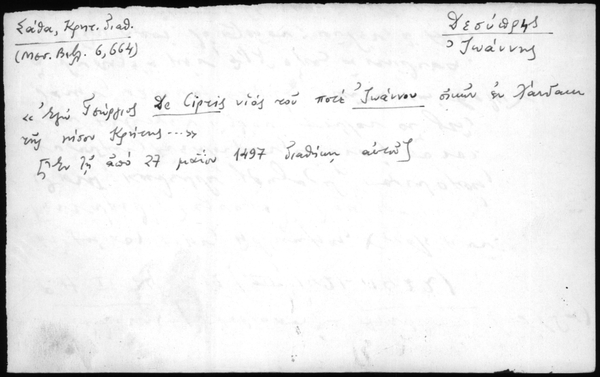 Σάθα, Κρητ. διαθ.
(Μεσ. Βιβλ. 6, 664)
Δεσύπρης
Ἰωάννης
« Ἐγώ Γεώργιος De Ciprís υἱός τοῦ ποτέ Ἰωάννου οἰκῶν ἐν Χάνδακι
τῆς νήσου Κρήτης ... »
[Ἐν τῇ ἀπό 27 μαΐου 1497 διαθήκῃ αὐτοῦ]